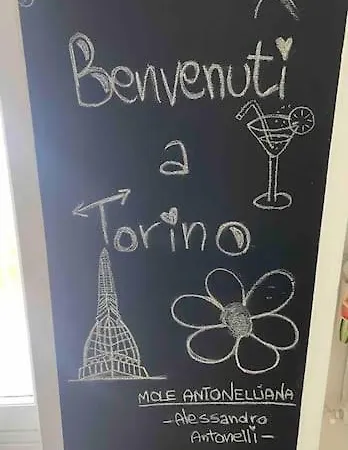 Benvenuti
a
Torino
MOLE ANTONELLIANA
- Alessandro
Antonelli -